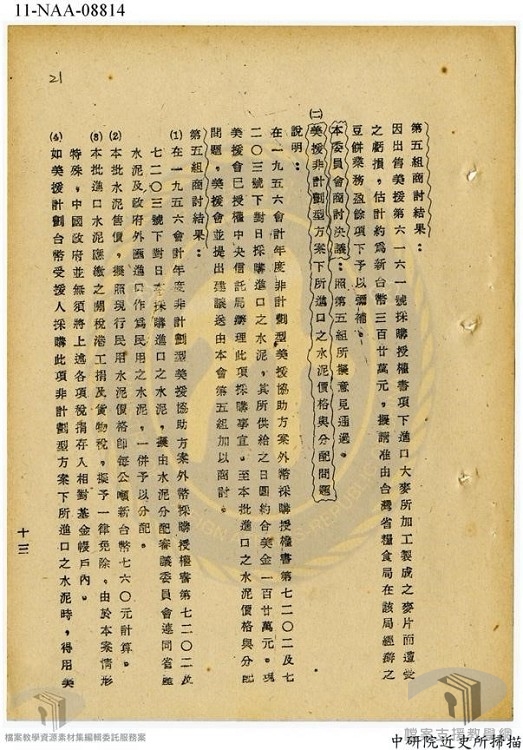 11-NAA-08814
21
第五組商討結果：
因出售美援第六一六一號採購授權書項下進口大麥所加工製成之麥片而遭受
之虧損，估計約為新台幣三百廿萬元，擬請准由台灣省糧食局在該局經辦之
豆餅業務盈餘項下予以彌補。
本委員會商討決議：照第五組所擬意見通過。
㈡美援非計劃型方案下所進口之水泥價格與分配問題
說明：
在一九五六會計年度非計劃型美援協助方案外幣採購授權書第七二〇二及七
二〇三號下對日採購進口之水泥，其所供給之日圓約合美金一百廿萬元。現
美援會已授權中央信託局辦理此項採購事宜。至本批進口之水泥價格與分配
問題，美援會並提出建議送由本會第五組加以商討。
第五組商討結果：
(1)在一九五六會計年度非計劃型美援協助方案外幣採購授權書第七二〇二及
七二〇三號下對日本採購進口之水泥，擬由水泥分配審議委員會連同省產
水泥及政府外匯進口作為民用之水泥，一併予以分配。
(2)本批水泥售價，擬照現行民用水泥價格即每公噸新台幣七六〇元計算。
(3)本批進口水泥應繳之關稅港工捐及貨物稅，擬予一律免除。由於本案情形
特殊，中國政府並無須將上述各項稅捐存入相對基金帳戶內。
(4)如美援計劃台幣受援人採購此項非計劃型方案下所進口之水泥時，得用美
十三
檔案教學資源素材集編輯委託服務案
檔案支援教學網
中研院近史所掃描